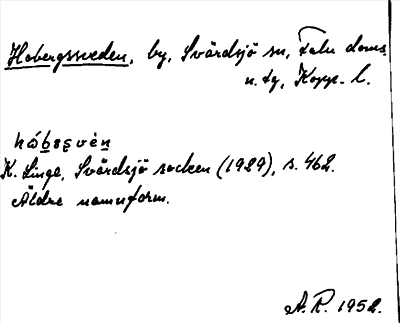 Hobergssveden, by, Svärdsjö sn, Falu doms.
n. tg, Kopp. l.
håbesvèn
K. Linge, Svärdsjö socken (1929), s. 462.
Äldre namnform.
A. R. 1952.